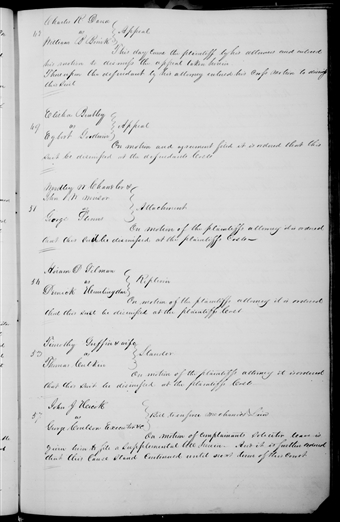 Charles R Dana
47 vs } Appeal
William
This day came the plaintiff by his attorney and entered
his motion to dismiss the appeal taken herein
Thereupon the defendant by his attorney entered his cross motion to dismiss
this suit
Elisha Bentley
49 vs } Appeal
On motion and agreement filed it is ordered that this
suit be dismissed at the defendants Costs
51 } Attachment
George
On motion of the plaintiffs attorney it is ordered
that this suit be dismissed at the plaintiffs Costs
Hiram D. Gilman
54 vs } Replevin
On motion of the plaintiffs attorney it is ordered
that this suit be dismissed at the plaintiffs Cost
Timothy Griffin & wife
55 vs } Slander
Thomas
On motion of the plaintiffs attorney it is ordered
that this suit be dismissed at the plaintiffs Cost
John J
57 vs } Mechanics Lien
George
On motion of complainants Solicitor leave is
given him to file a Supplemental Bill herein. And it is further ordered
that this Cause Stand Continued until next term of this Court